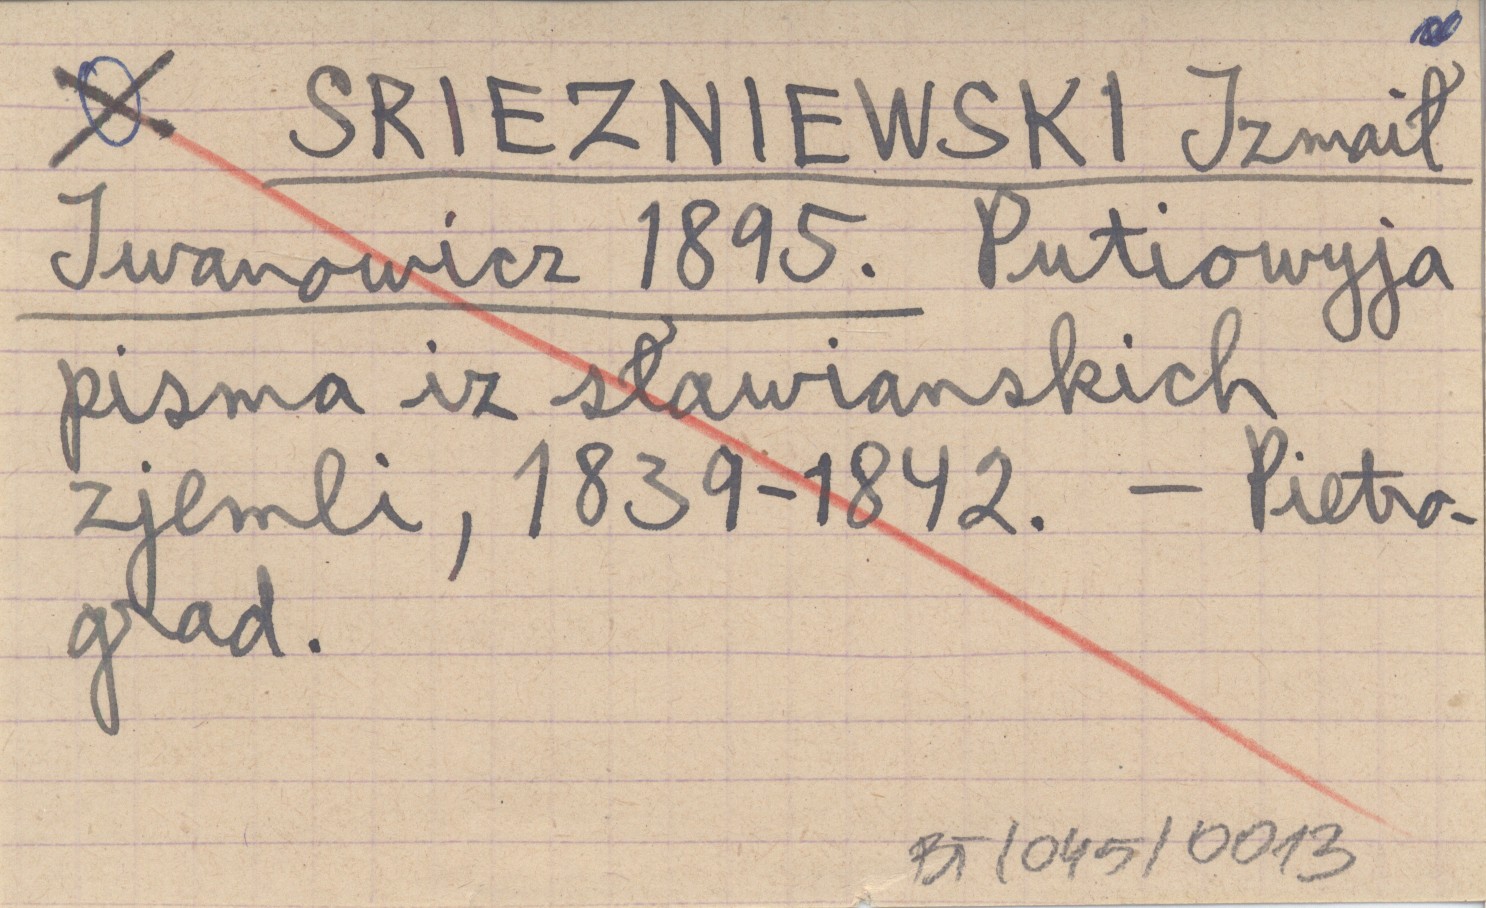 SRIEZNIEWSKI Izmaił
Iwanowicz 1895. Putiowyja
pisma iz sławianskich
zjemli, 1839-1842. — Pietro-
grad.
BT/045/0013